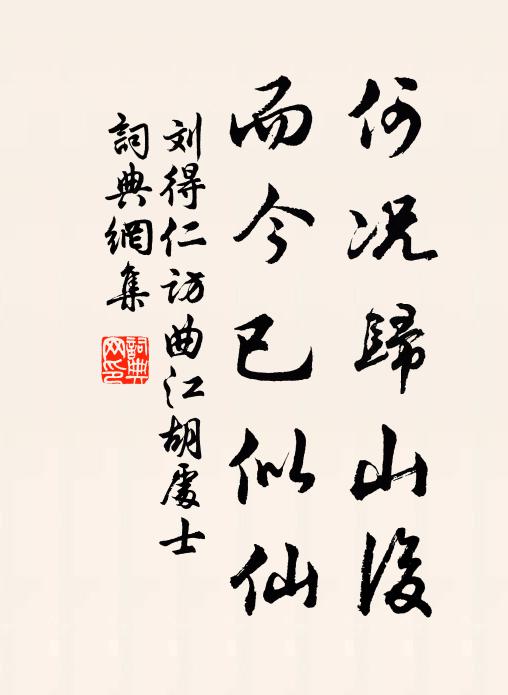 何况歸山後
而今已似仙
刘得仁访曲江胡處士
詞典網集
詞典网印